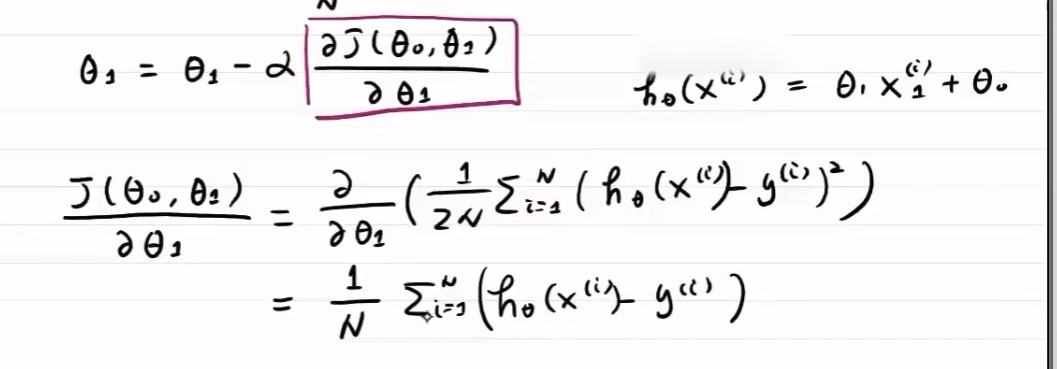 N
θ₁ = θ₁ - α ∂J(θ₀, θ₁) / ∂θ₁
h_θ(x⁽ⁱ⁾) = θ₁ x₁⁽ⁱ⁾ + θ₀
J(θ₀, θ₁) / ∂θ₁ = ∂/∂θ₁ ( 1/2N Σᵢ₌₁ᴺ ( h_θ(x⁽ⁱ⁾) - y⁽ⁱ⁾ )² )
= 1/N Σᵢ₌₁ᴺ ( h_θ(x⁽ⁱ⁾) - y⁽ⁱ⁾ )